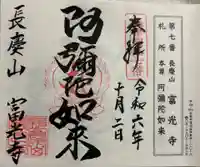 第七番 長慶山 富光寺
札所 本尊 阿彌陀如来
奉拜
令和六年
十月二日
阿彌陀如来
長慶山
富光寺